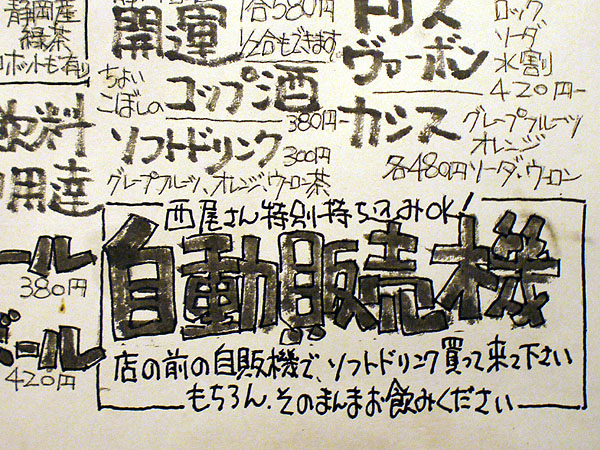 静岡産
緑茶
ポットも有り
飲料
用達
ール
380円
ボール
420円
開運
1合580円
1/2合もできます
ちょい
こぼしの
コップ酒
380円~
ソフトドリンク
300円
グレープフルーツ、オレンジ、ウーロン茶、
トリス
ヴァーボン
ロック
ソーダ
水割
420円~
カシス
グレープフルーツ
オレンジ
各480円 ソーダ、ウーロン
西尾さん特別持ち込みOK!
自動販売機
店の前の自販機で、ソフトドリンク買って来て下さい
もちろん、そのまんまお飲みください